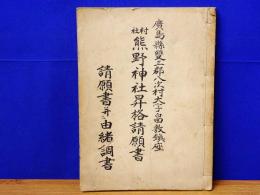 廣島縣雙三郡八次村大字畠敷鎮座
村社 熊野神社昇格請願書
請願書并由緒調書